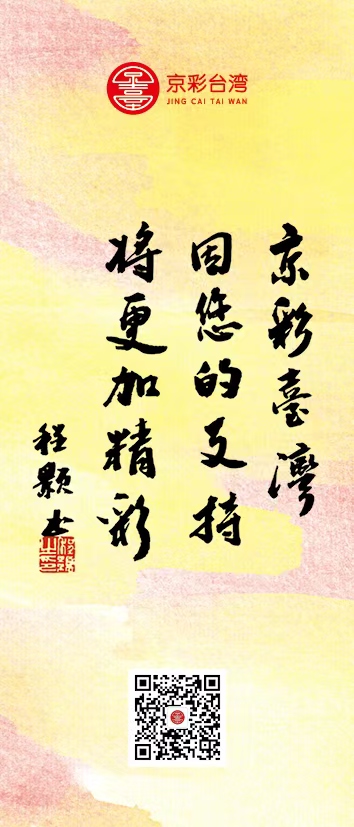 京彩台湾
JING CAI TAI WAN
京彩臺灣
因您的支持
将更加精彩
程颢书